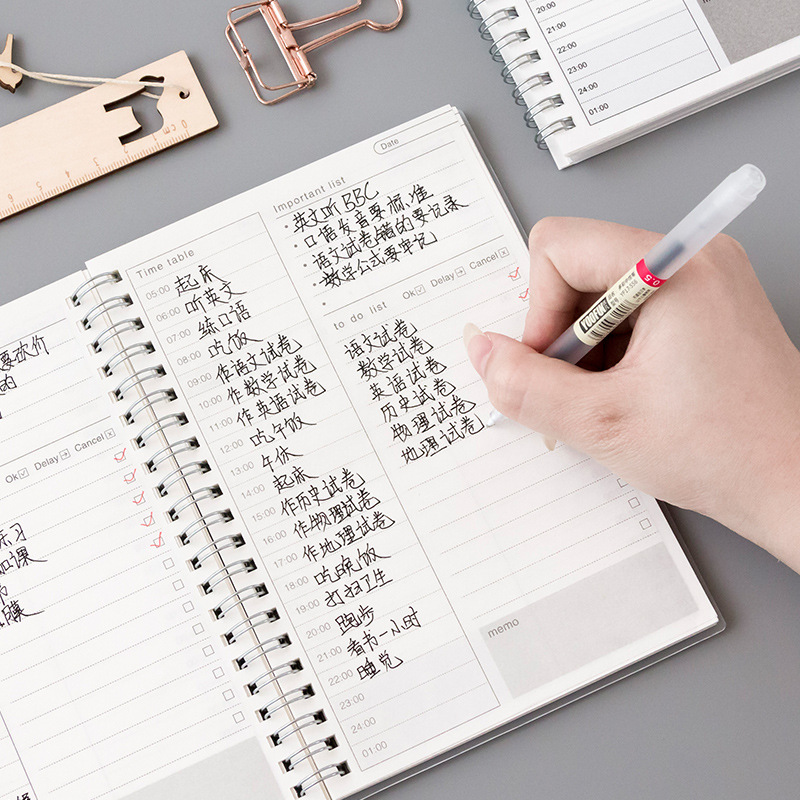 要砍价
的
Ok Delay Cancel
练习
加课
书
Date
Important list
· 英文听BBC
· 口语发音要标准
· 语文试卷错的要记录
· 数学公式要牢记
·
Time table
05:00 起床
06:00 听英文
07:00 练口语
08:00 吃饭
09:00 作语文试卷
10:00 作数学试卷
11:00 作英语试卷
12:00 吃午饭
13:00 午休
14:00 起床
15:00 作历史试卷
16:00 作物理试卷
17:00 作地理试卷
18:00 吃晚饭
19:00 打扫卫生
20:00 跑步
21:00 看书一小时
22:00 睡觉
23:00
24:00
01:00
to do list Ok Delay Cancel
语文试卷
数学试卷
英语试卷
历史试卷
物理试卷
地理试卷
memo
20:00
21:00
22:00
23:00
24:00
01:00
0.5
0 1cm
5
6